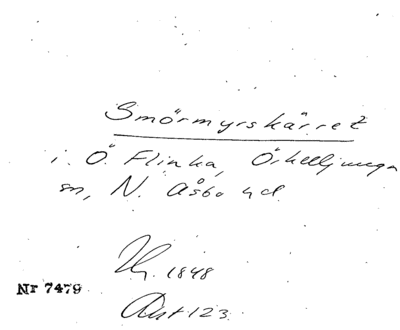 Smörmyrskärret
i Ö. Flinka, Örkelljunga
sn, N. Åsbo hd.
1848
Nr 7479
Akt 123.